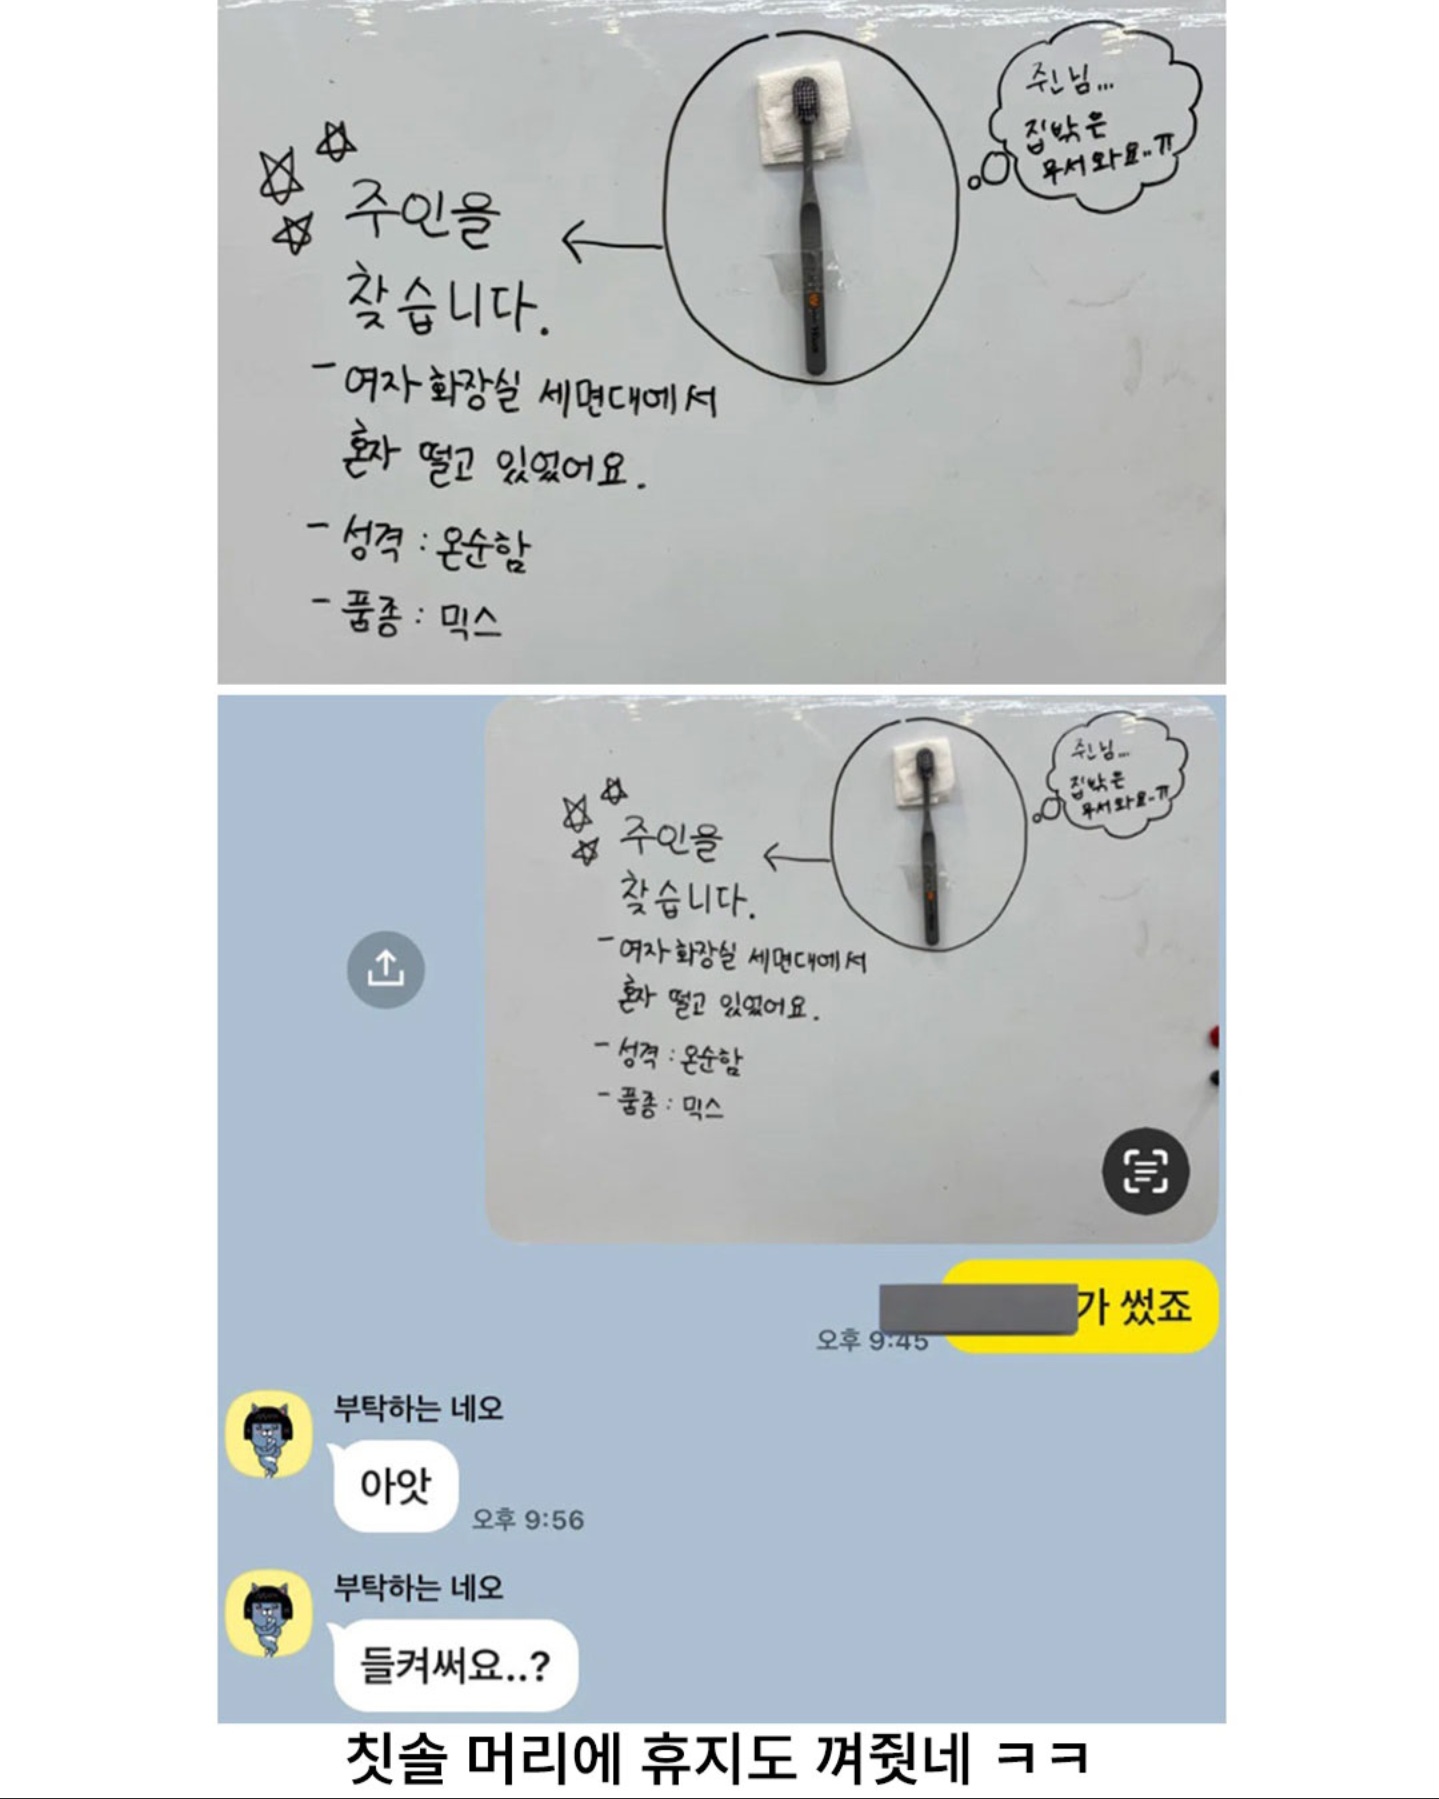 주인님...
집밖은
무서와요..ㅠ
주인을
찾습니다.
- 여자 화장실 세면대에서
혼자 떨고 있었어요.
- 성격 : 온순함
- 품종 : 믹스
주인님...
집밖은
무서와요..ㅠ
주인을
찾습니다.
- 여자 화장실 세면대에서
혼자 떨고 있었어요.
- 성격 : 온순함
- 품종 : 믹스
가 썼죠
오후 9:45
부탁하는 네오
아앗
오후 9:56
부탁하는 네오
들켜써요..?
칫솔 머리에 휴지도 껴줫네 ㅋㅋ